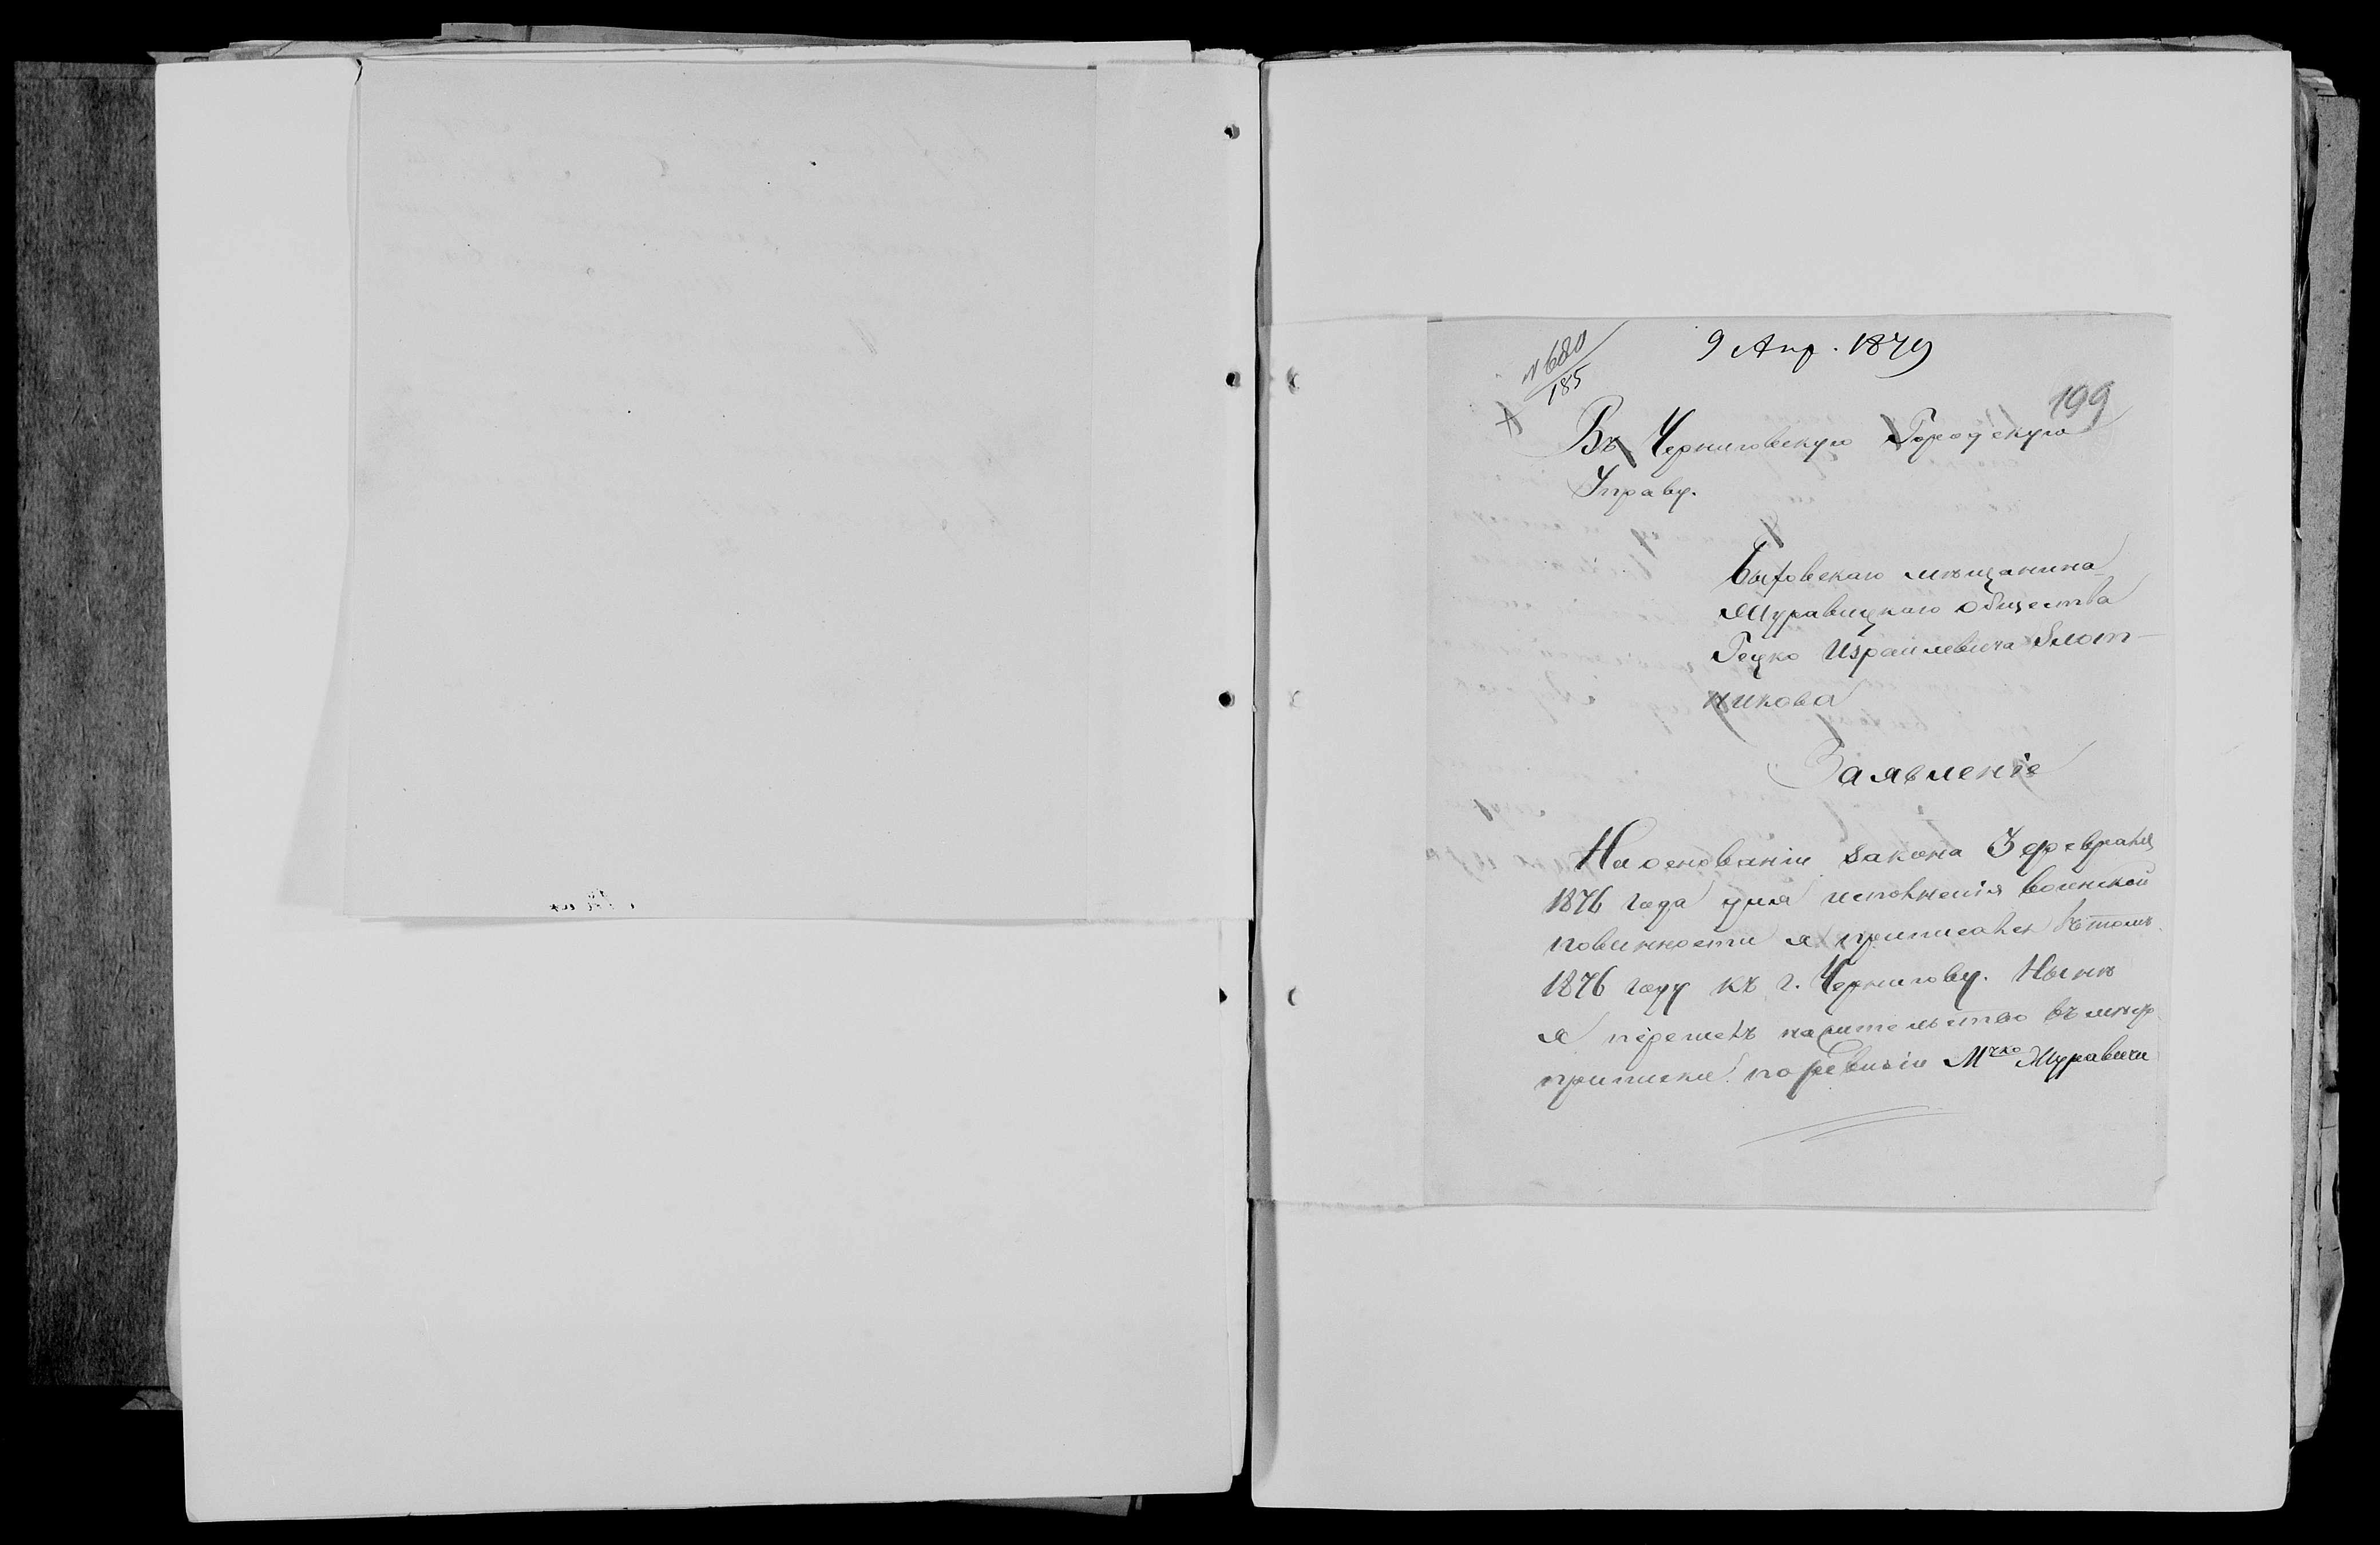 № 680
185
9 Апр. 1879
199
Въ Черниговскую Городскую
Управу.
Быховскаго мѣщанина
Муравицкаго общества
Гецко Израилевича Злот-
никова
Заявленіе
На основаніи закона 3 февраля
1876 года для исполненія воинской
повинности я приписался въ томъ
1876 году къ г. Чернигову. Нынѣ
я перешелъ на жительство въ
приписки по ревизіи Мчко Муравичи